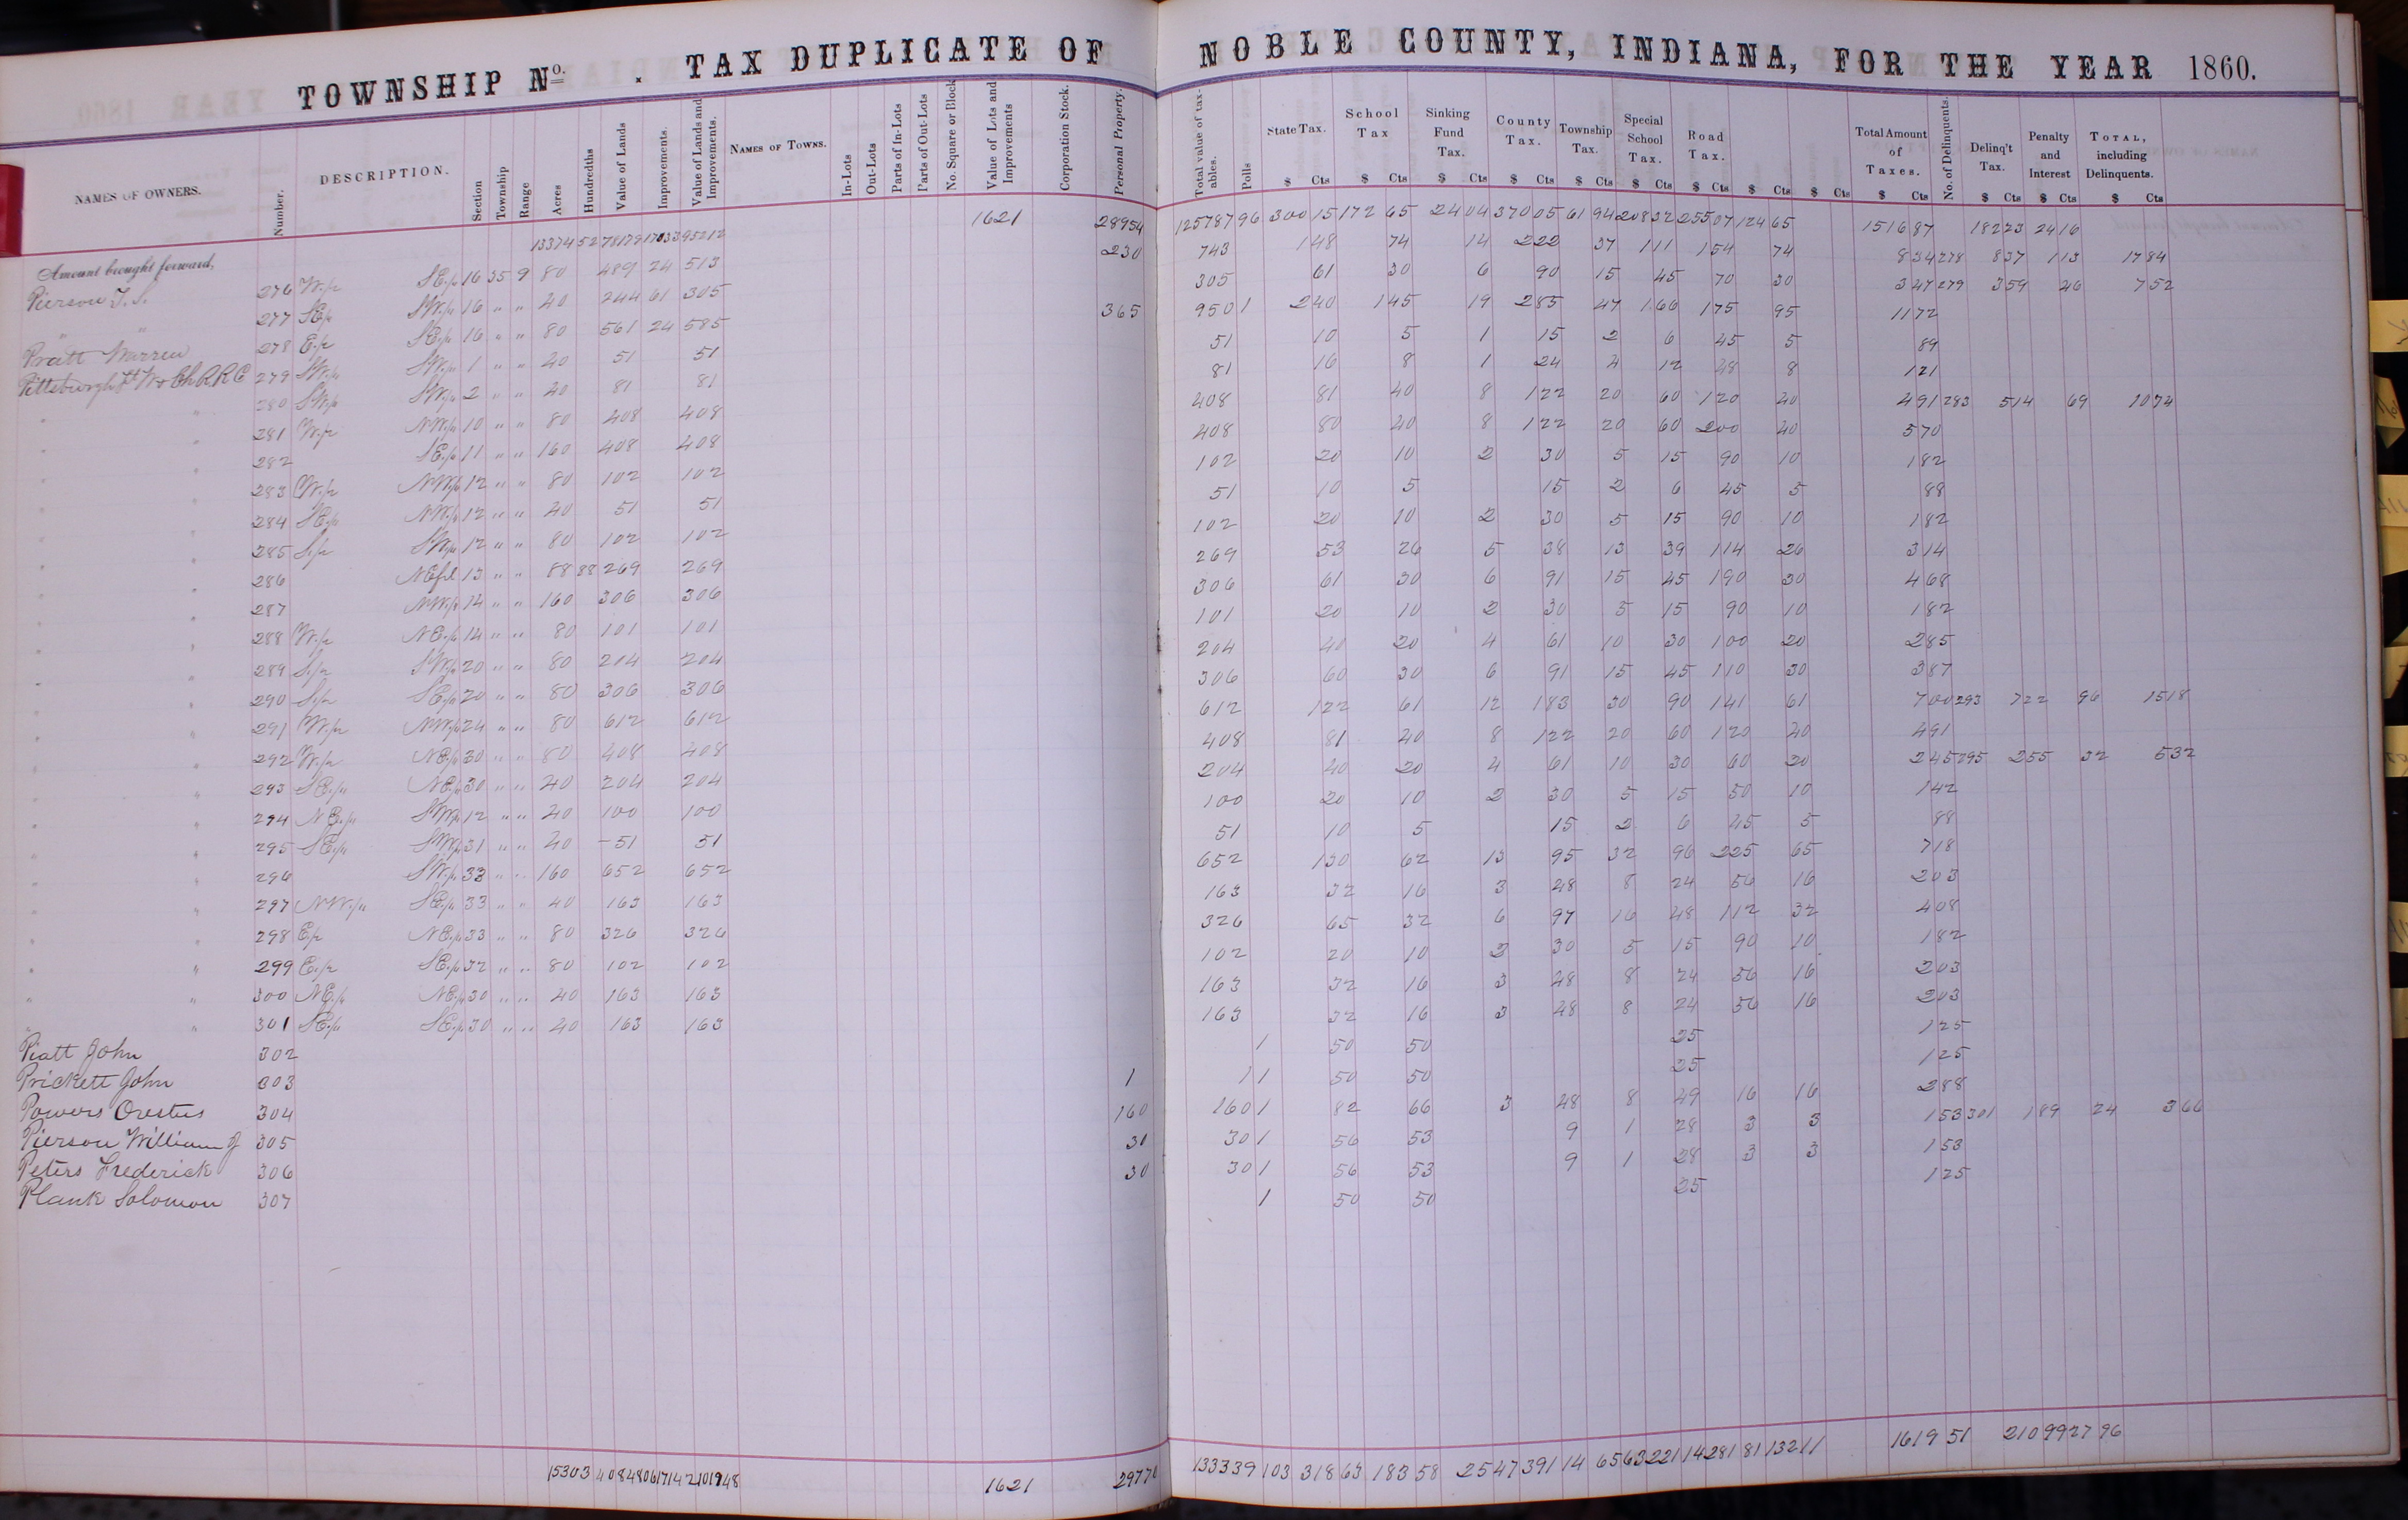 TOWNSHIP No. . TAX DUPLICATE OF NOBLE COUNTY, INDIANA, FOR THE YEAR 1860.
NAMES OF OWNERS. Number. DESCRIPTION. Section Township Range Acres Hundredths Value of Lands Improvements. Value of Lands and Improvements. NAMES OF TOWNS. In-Lots Out-Lots Parts of In-Lots Parts of Out-Lots No. Square or Block Value of Lots and Improvements Corporation Stock. Personal Property. Total value of taxables. Polls State Tax. School Tax Sinking Fund Tax. County Tax. Township Tax. Special School Tax. Road Tax. Total Amount of Taxes. No. of Delinquents. Delinq't Tax. Penalty and Interest TOTAL, including Delinquents.
$ Cts $ Cts $ Cts $ Cts $ Cts $ Cts $ Cts $ Cts $ Cts $ Cts $ Cts $ Cts $ Cts
Amount brought forward, 13374 52 78179 17033 95212 1621 28954 125787 96 300 15 172 65 24 04 370 05 61 94 208 32 255 07 124 65 1516 87 182 23 24 16
Pierson T. S. 276 W.½ S.E.¼ 16 35 9 80 489 24 513 230 743 148 74 14 222 37 111 154 74 834 278 837 113 1784
" " 277 S.E.¼ S.W.¼ 16 " " 40 244 61 305 305 61 30 6 90 15 45 70 30 347 279 359 46 752
Pratt Warren 278 E.½ S.E.¼ 16 " " 80 561 24 585 365 950 1 240 145 19 285 47 166 175 95 1172
Pittsburgh Ft W & Ch R R C 279 S.W.¼ S.W.¼ 1 " " 40 51 51 51 10 5 1 15 2 6 45 5 89
" " 280 S.W.¼ S.W.¼ 2 " " 40 81 81 81 16 8 1 24 4 12 48 8 121
" " 281 W.½ N.W.¼ 10 " " 80 408 408 408 81 40 8 122 20 60 120 40 491 283 514 69 1074
" " 282 S.E.¼ 11 " " 160 408 408 408 80 40 8 122 20 60 200 40 570
" " 283 W.½ N.W.¼ 12 " " 80 102 102 102 20 10 2 30 5 15 90 10 182
" " 284 S.E.¼ N.W.¼ 12 " " 40 51 51 51 10 5 15 2 6 45 5 88
" " 285 S.½ S.W.¼ 12 " " 80 102 102 102 20 10 2 30 5 15 90 10 182
" " 286 N.E. frl 13 " " 88 88 269 269 269 53 26 5 38 13 39 114 26 314
" " 287 N.W.¼ 14 " " 160 306 306 306 61 30 6 91 15 45 190 30 468
" " 288 W.½ N.E.¼ 14 " " 80 101 101 101 20 10 2 30 5 15 90 10 182
" " 289 S.½ S.W.¼ 20 " " 80 204 204 204 40 20 4 61 10 30 100 20 285
" " 290 S.½ S.E.¼ 20 " " 80 306 306 306 60 30 6 91 15 45 110 30 387
" " 291 W.½ N.W.¼ 24 " " 80 612 612 612 122 61 12 183 30 90 141 61 700 293 722 96 1518
" " 292 W.½ N.E.¼ 30 " " 80 408 408 408 81 40 8 122 20 60 120 40 491
" " 293 S.E.¼ N.E.¼ 30 " " 40 204 204 204 40 20 4 61 10 30 60 20 245 295 255 32 532
" " 294 N.E.¼ S.W.¼ 12 " " 40 100 100 100 20 10 2 30 5 15 50 10 142
" " 295 S.E.¼ S.W.¼ 31 " " 40 51 51 51 10 5 15 2 6 45 5 88
" " 296 S.W.¼ 33 " " 160 652 652 652 130 62 13 95 32 96 225 65 718
" " 297 N.W.¼ S.E.¼ 33 " " 40 163 163 163 32 16 3 48 8 24 56 16 203
" " 298 E½ N.E.¼ 33 " " 80 326 326 326 65 32 6 97 16 48 112 32 408
" " 299 E.½ S.E.¼ 32 " " 80 102 102 102 20 10 2 30 5 15 90 10 182
" " 300 N.E.¼ N.E.¼ 30 " " 40 163 163 163 32 16 3 48 8 24 56 16 203
" " 301 S.E.¼ S.E.¼ 30 " " 40 163 163 163 32 16 3 48 8 24 56 16 203
Piatt John 302 1 50 50 25 125
Prickett John 303 1 1 1 50 50 25 125
Powers Orestus 304 160 160 1 82 66 3 48 8 49 16 16 288
Pierson William J 305 30 30 1 56 53 9 1 28 3 3 153 301 189 24 366
Peters Frederick 306 30 30 1 56 53 9 1 28 3 3 153
Plank Solomon 307 1 50 50 25 125
15303 40 84806 17142 101948 1621 29770 133339 103 318 63 183 58 25 47 391 14 65 63 221 14 281 81 132 11 1619 51 210 99 27 96